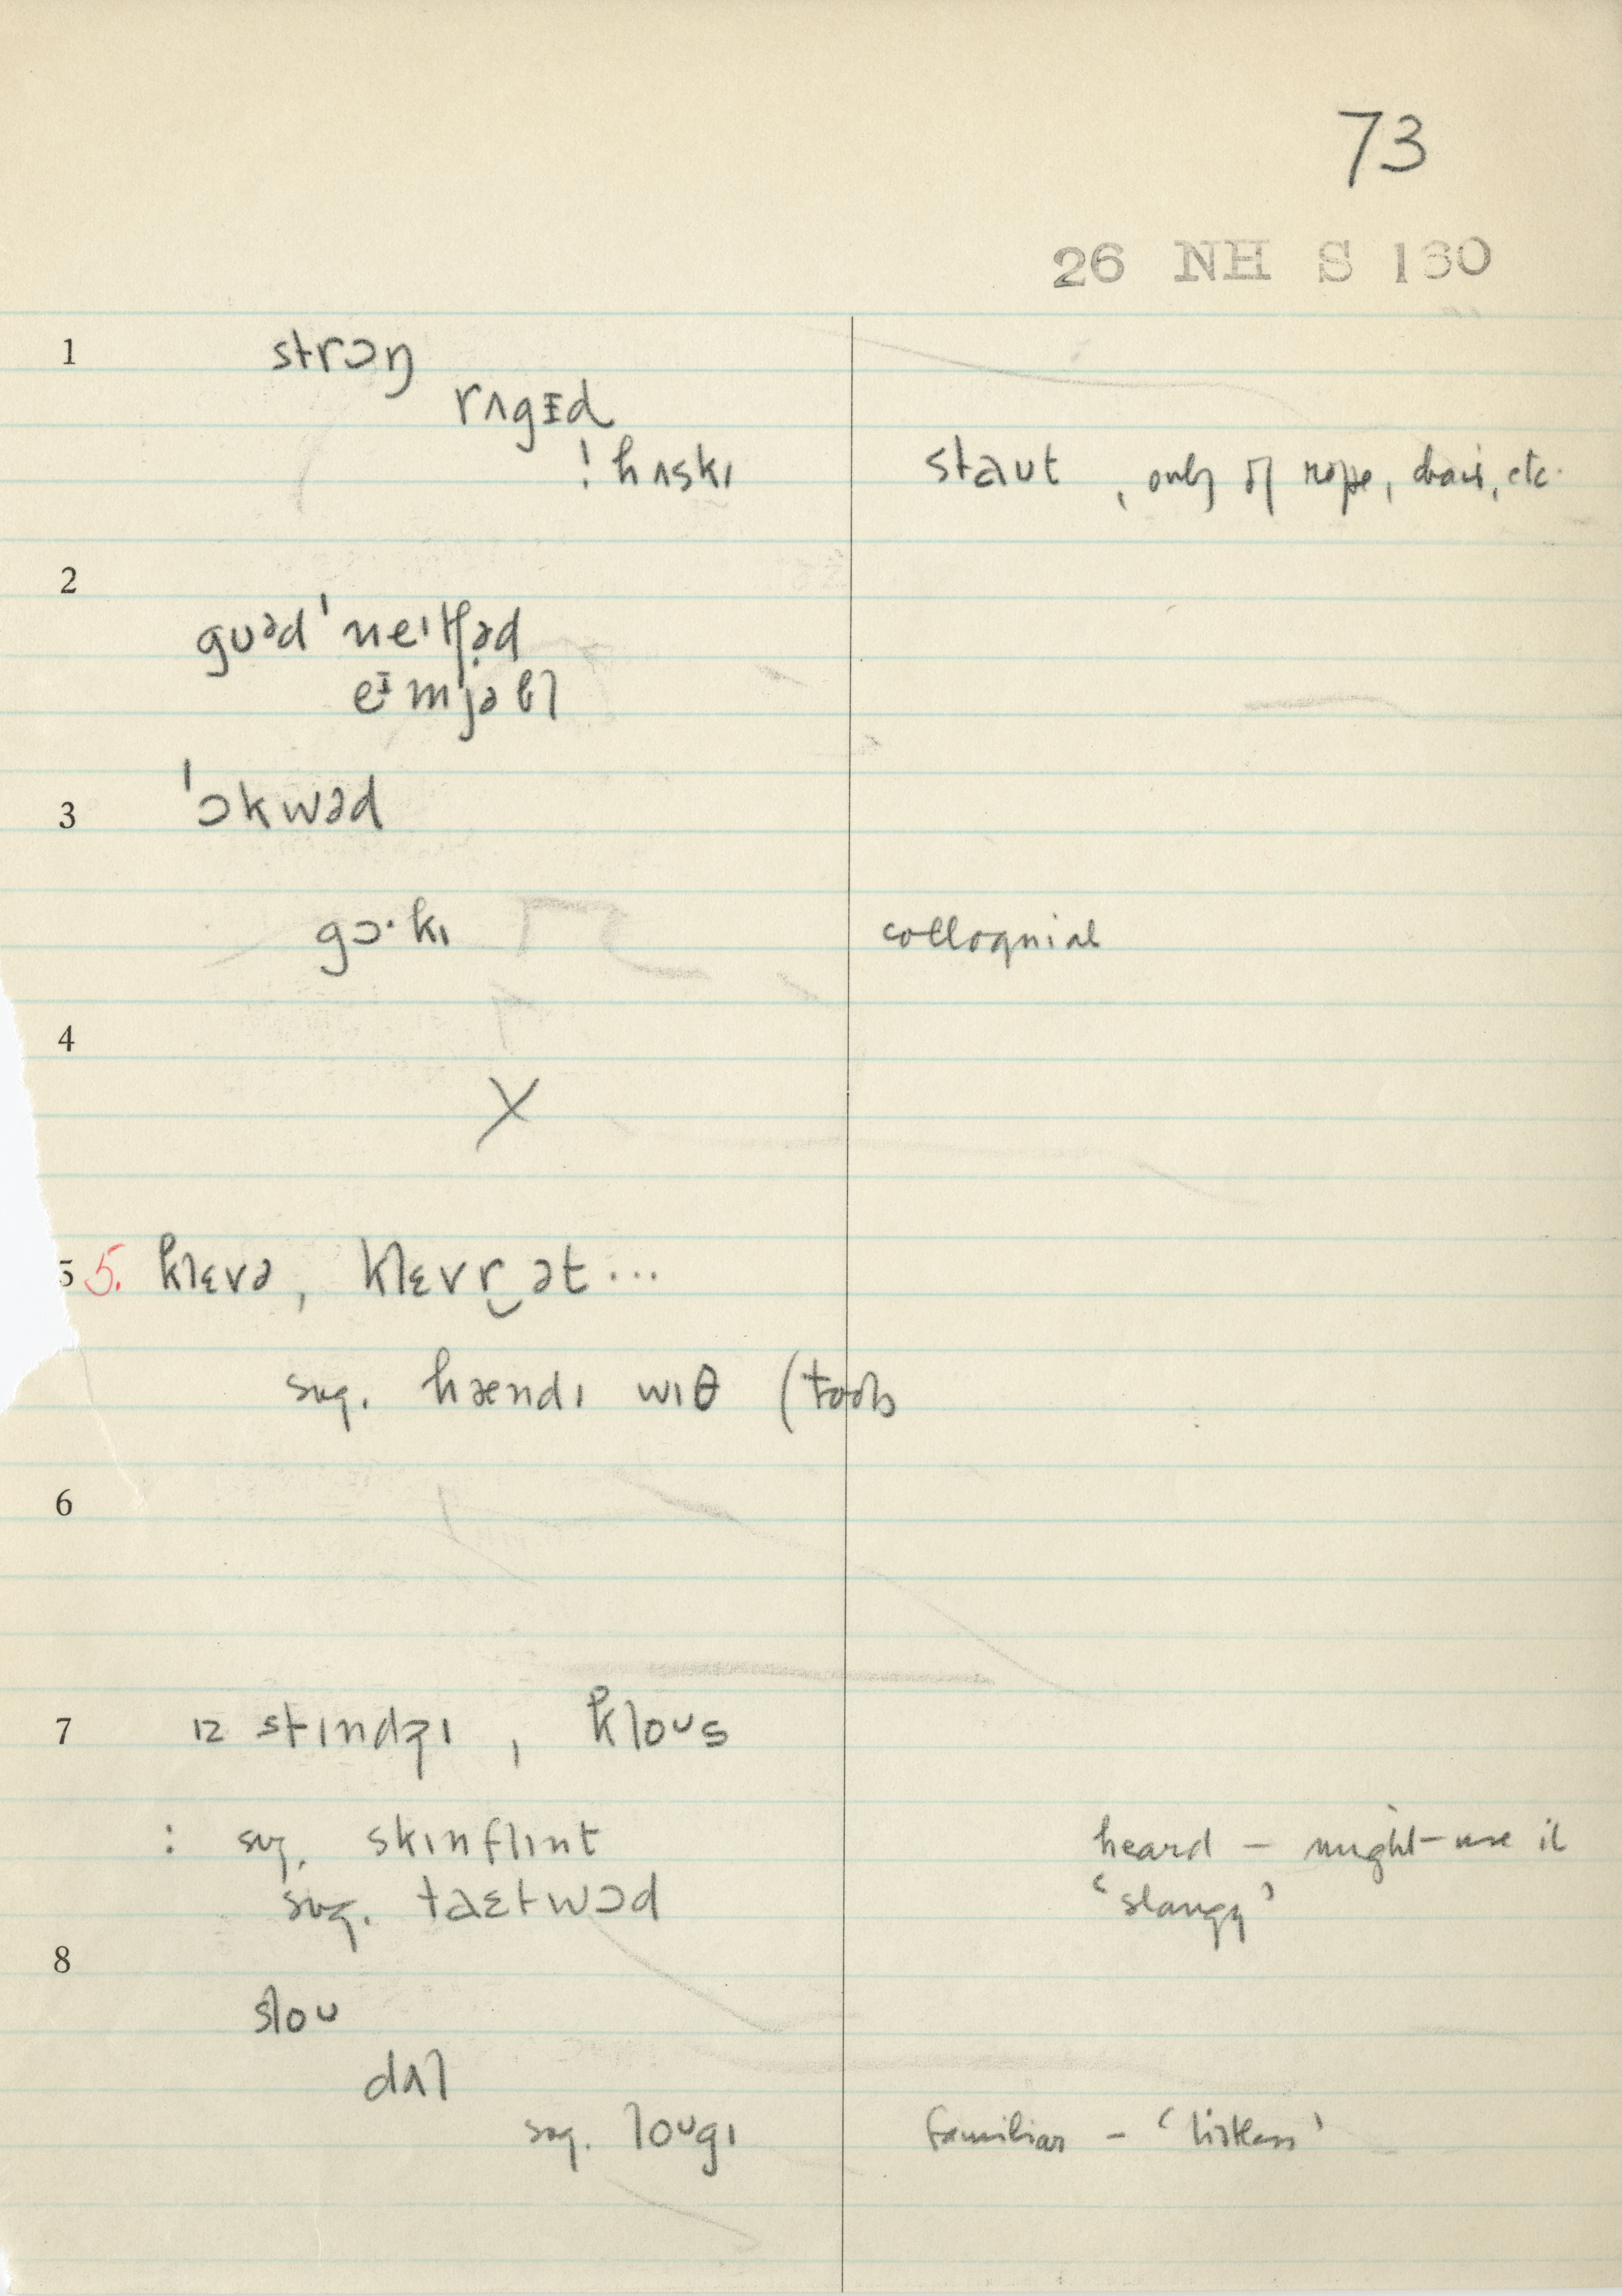 73
26 NH S 130
1 strɔŋ
rʌgɪd
! hʌskɪ staut , only of rope, chair, etc.
2
gʊəd'neɪtʃəd
eɪmjəbl
3 'ɔkwəd
gɔ·kɪ colloquial
4
X
5 5. klɛvə, klɛvr‿ət...
sug. hændɪ wɪθ (tools
6
7 ɪz stɪndʒɪ , kloʊs
: sug. skɪnflɪnt heard – might use it
sug. taɛtwɔd 'slangy'
8
sloʊ
dʌl
sug. loʊgɪ familiar – 'listless'